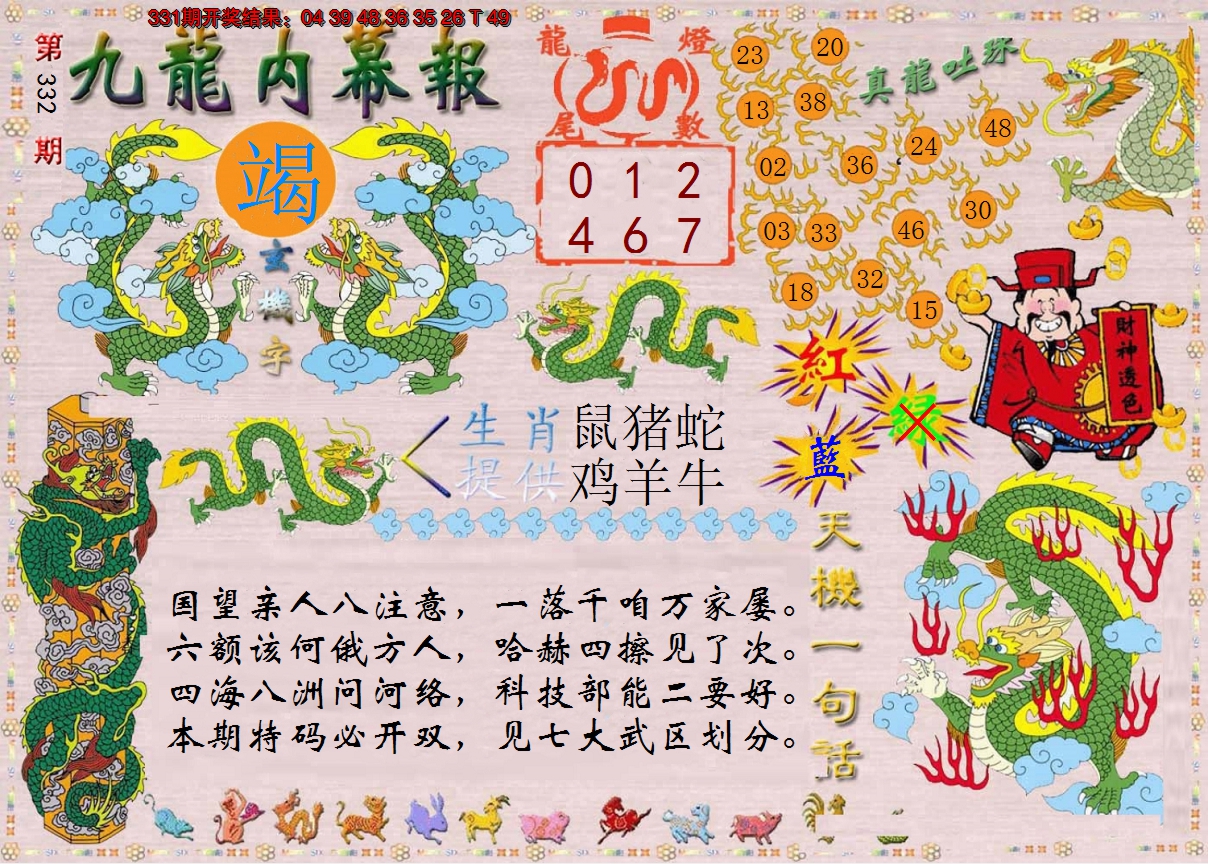 331期开奖结果：04 39 48 36 35 26 T 49
第332期
九龍内幕報
龍燈尾數
真龍吐珠
竭
玄機字
0 1 2
4 6 7
23 20
13 38
02 36 24 48
03 33 46 30
18 32 15
紅
绿
藍
財神透色
生肖 鼠猪蛇
提供 鸡羊牛
天機一句話
国望亲人八注意，一落千咱万家屡。
六额该何俄方人，哈赫四擦见了次。
四海八洲问河络，科技部能二要好。
本期特码必开双，见七大武区划分。